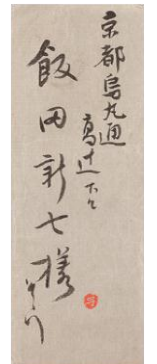 京都烏丸通
高辻下ル
飯田新七様